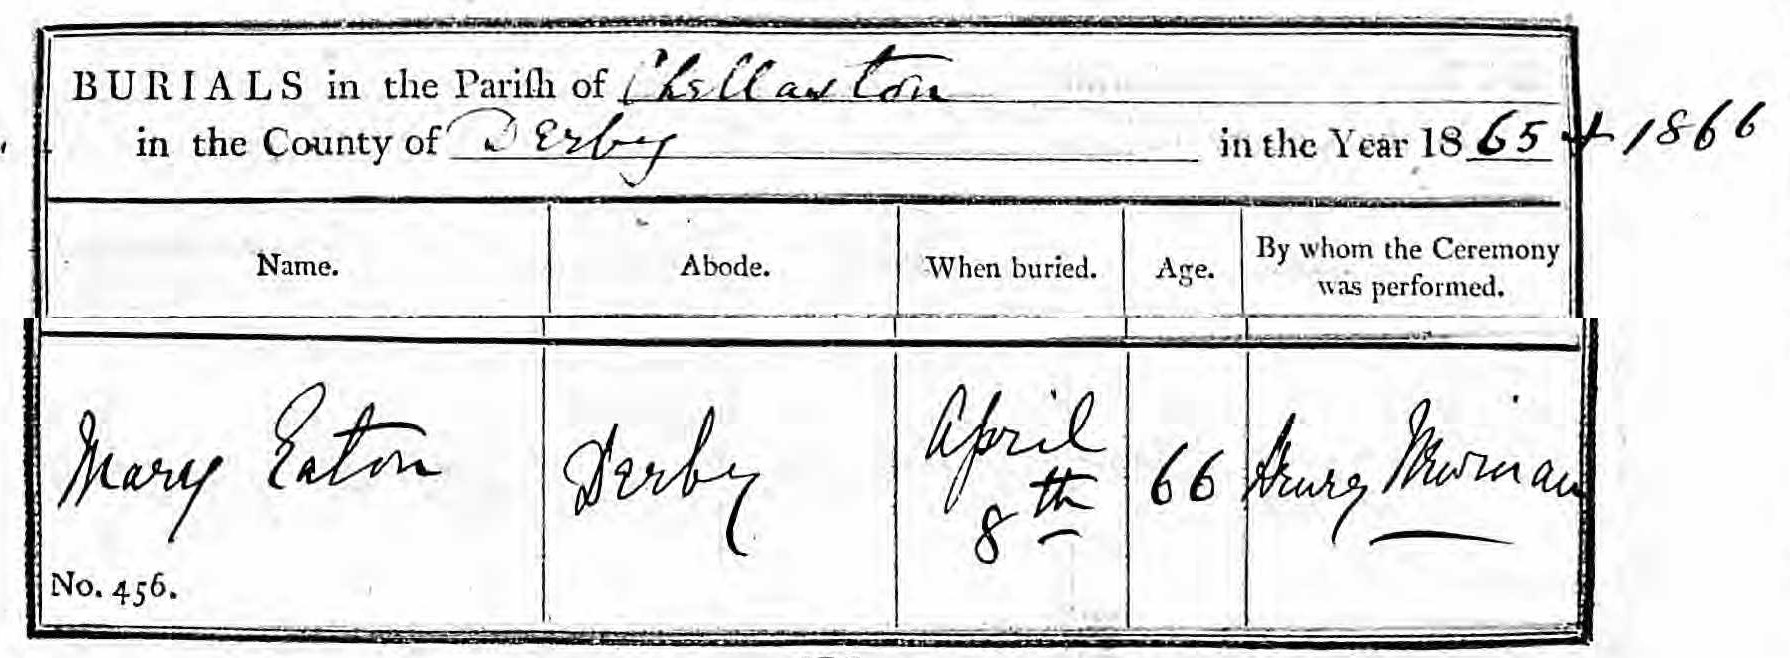 BURIALS in the Pariſh of Chellaston
in the County of Derby in the Year 1865 + 1866
Name. Abode. When buried. Age. By whom the Ceremony
was performed.
Mary Eaton Derby April
8th 66 Henry
No. 456.